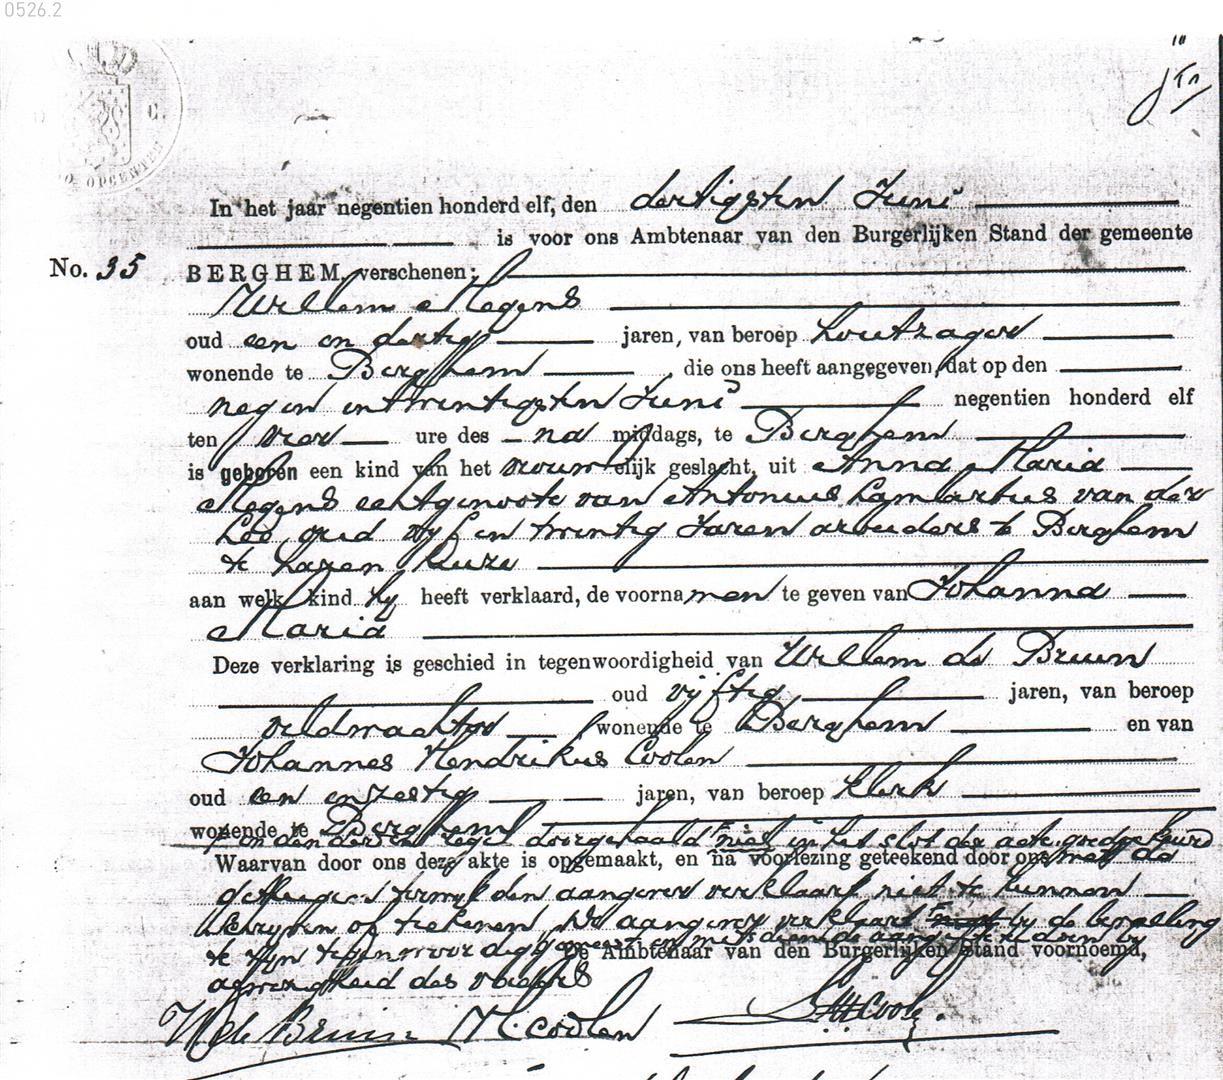 0526.2
C.
In het jaar negentien honderd elf, den dertigsten Juni
is voor ons Ambtenaar van den Burgerlijken Stand der gemeente
No. 35 BERGHEM, verschenen:
Willem Megens
oud een en dertig jaren, van beroep houtzager
wonende te Berghem, die ons heeft aangegeven, dat op den
negen en twintigsten Juni negentien honderd elf
ten vier ure des na middags, te Berghem
is geboren een kind van het vrouwelijk geslacht, uit Anna Maria
Megens echtgenoote van Antonius Lambertus van der
Loo, oud vijf en twintig Jaren arbeiders te Berghem
te haren huize
aan welk kind hij heeft verklaard, de voornamen te geven van Johanna
Maria
Deze verklaring is geschied in tegenwoordigheid van Willem de Bruin
oud vijftig jaren, van beroep
veldwachter wonende te Berghem en van
Johannes Hendrikus Coolen
oud een en zestig jaren, van beroep klerk
wonende te Berghem
in den derden regel doorgehaald niet in het slot der acte goedgekeurd
Waarvan door ons deze akte is opgemaakt, en na voorlezing geteekend door ons met de
getuigen terwijl den aangever verklaart niet te kunnen
schrijven of teekenen De aangever verklaart bij de bevalling
te zijn tegenwoordig geweest en
De Ambtenaar van den Burgerlijken Stand voornoemd,
afwezigheid des vaders
W de Bruin H. Coolen